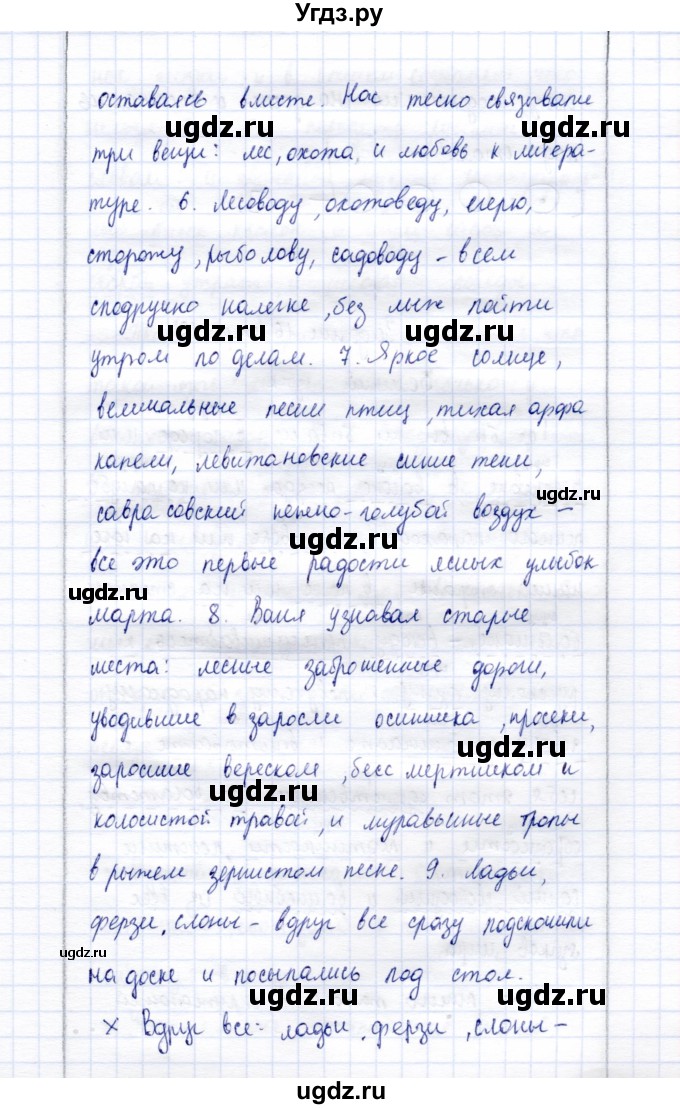 Угдз.ру
оставаясь вместе. Нас тесно связывали
ugdz.ru ugdz.ru
три вещи: лес, охота и любовь к литера-
туре. 6. Лесоводу, охотоведу, егерю,
сторожу, рыболову, садоводу – всем
сподручно налегке, без лыж пойти
ugdz.ru ugdz.ru
утром по делам. 7. Яркое солнце,
величальные песни птиц, тихая арфа
капели, левитановские синие тени,
ugdz.ru
саврасовский нежно-голубой воздух –
ugdz.ru
все это первые радости ясных улыбок
ugdz.ru
марта. 8. Ваня узнавал старые
места: лесные заброшенные дороги,
уводившие в заросли осинника, просеки,
ugdz.ru
заросшие вереском, бессмертником и
ugdz.ru
колосистой травой, и муравьиные тропы
в рыжем зернистом песке. 9. Ладьи,
ферзи, слоны – вдруг все сразу подскочили
ugdz.ru
на доске и посыпались под стол.
ugdz.ru ugdz.ru
х Вдруг все: ладьи, ферзи, слоны –
ugdz.ru